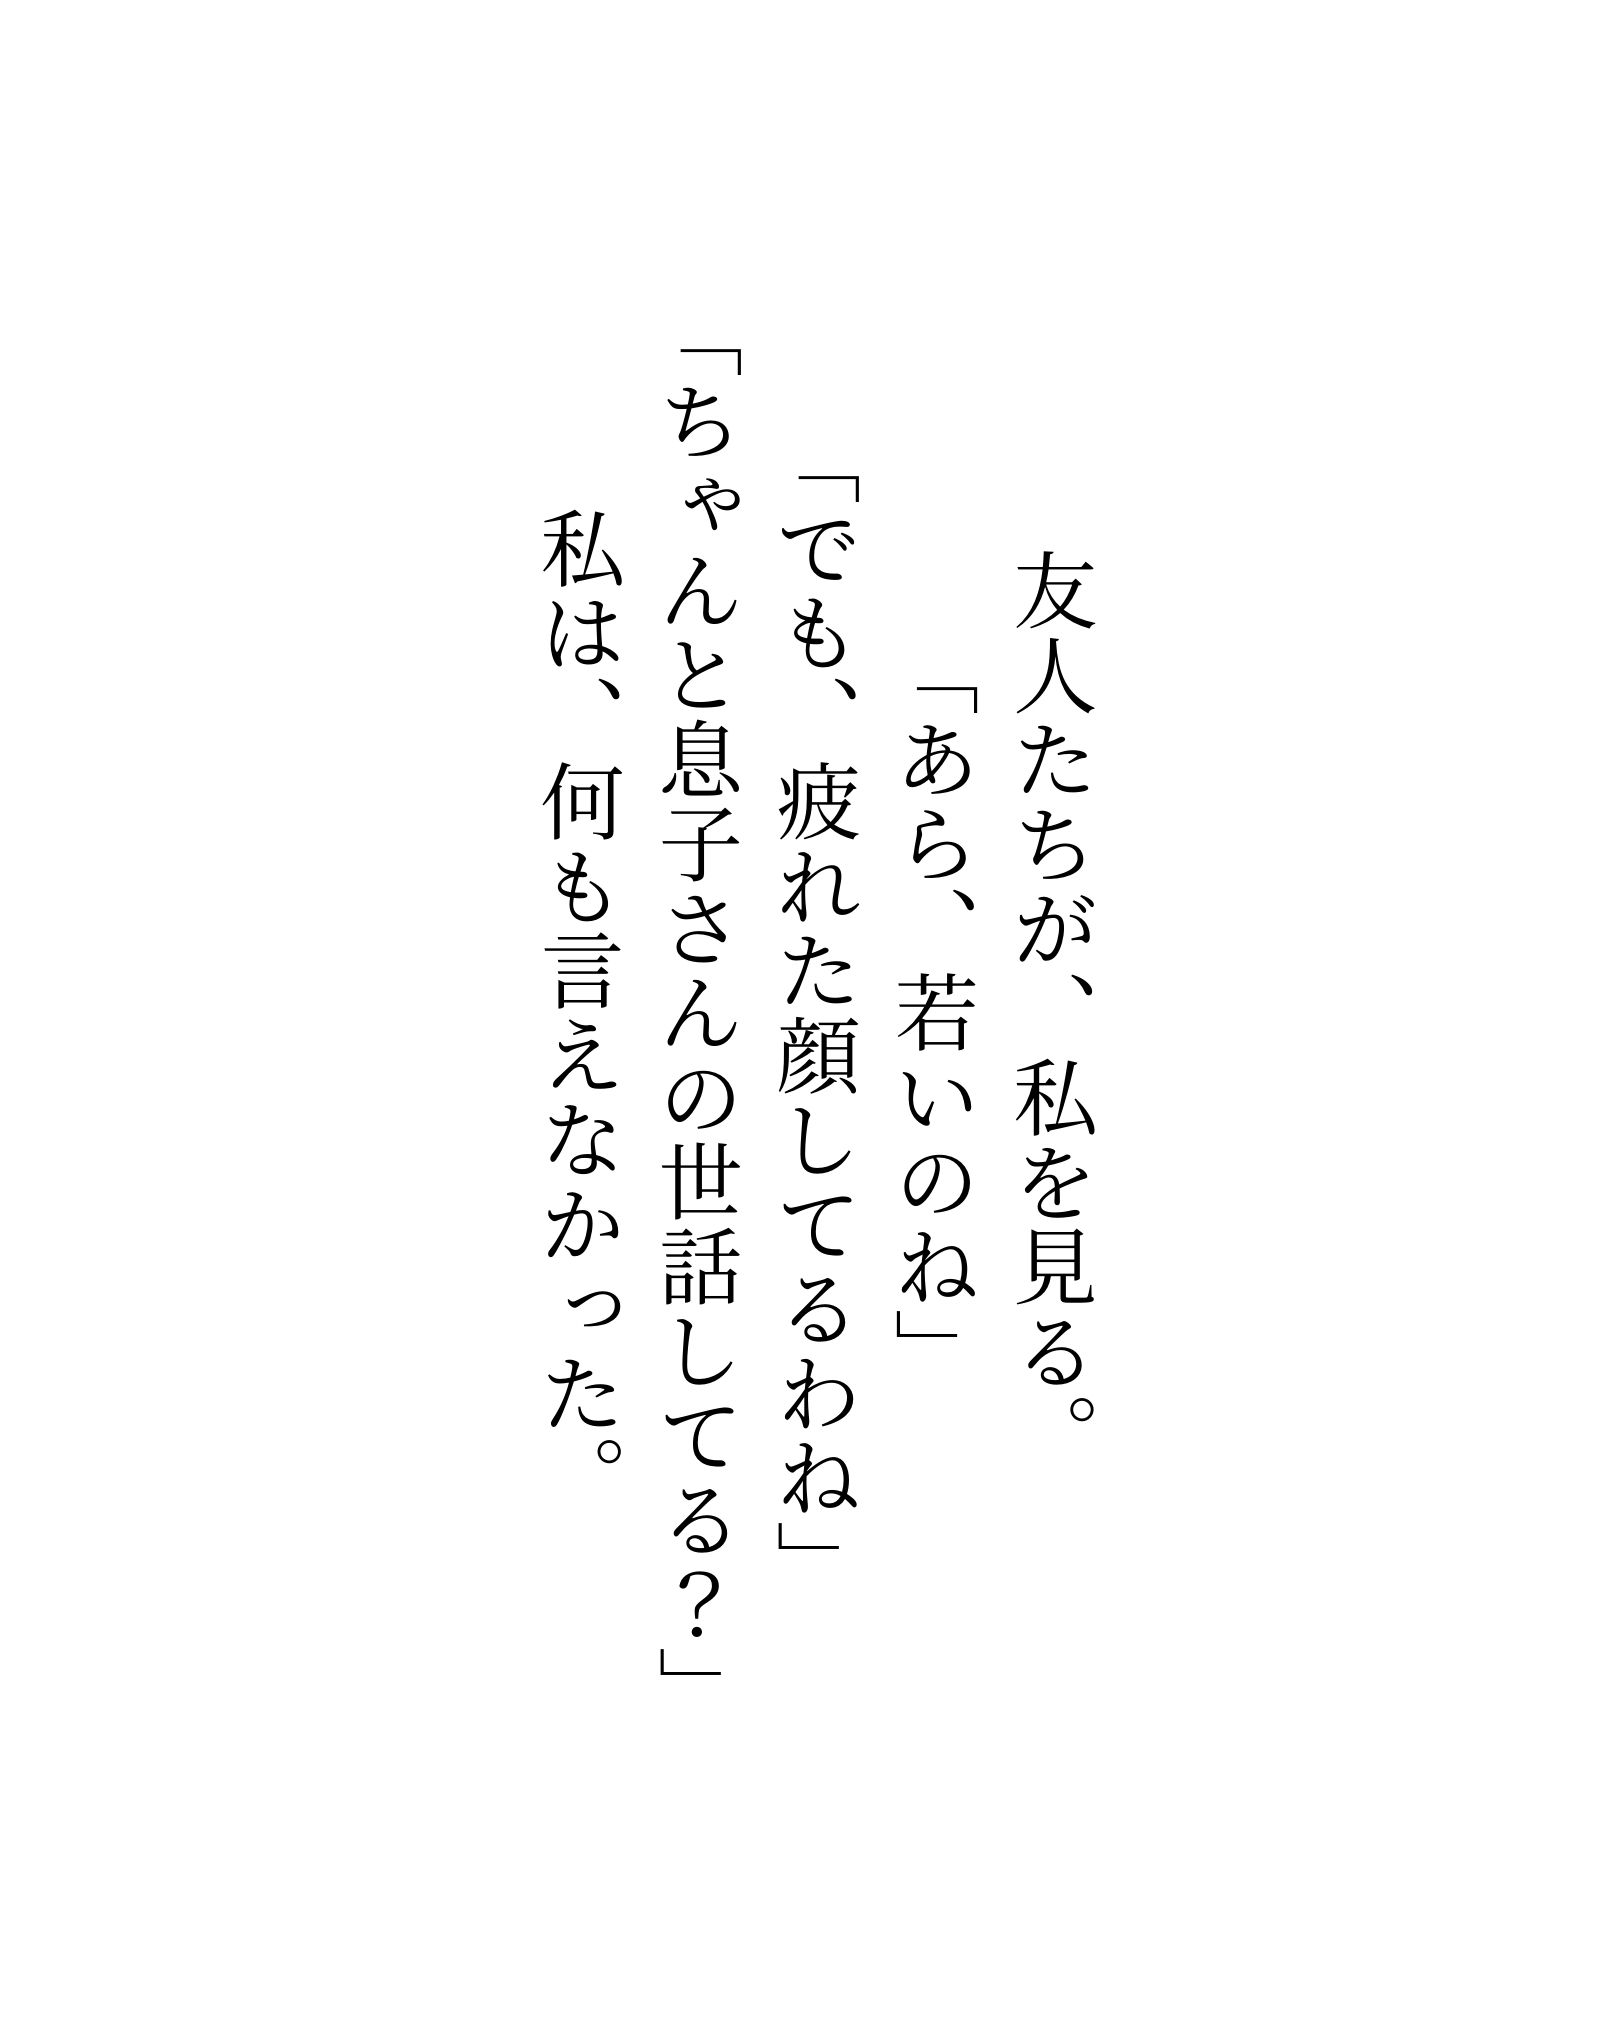 友人たちが、私を見る。
「あら、若いのね」
「でも、疲れた顔してるわね」
「ちゃんと息子さんの世話してる？」
私は、何も言えなかった。